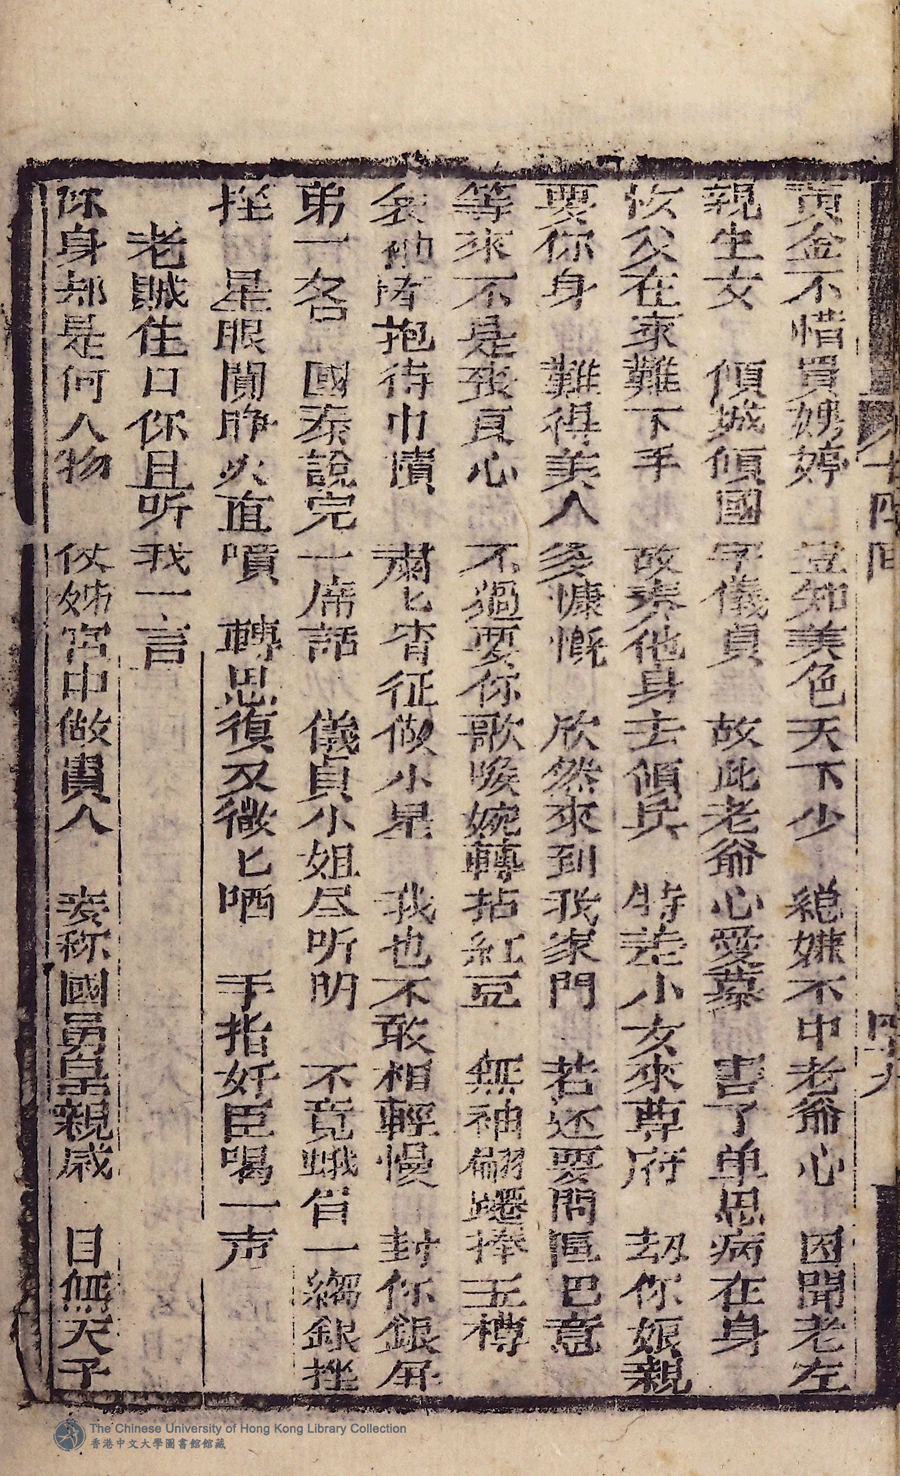 黄金不惜買娉婷 豈知美色天下少 總嫌不中老爺心 因聞老左
親生女 傾城傾國字儀貞 故此老爺心愛慕 害了单思病在身
汝父在家難下手 故奏他身去傾兵 特差小女來尊府 刼你娘親
要你身 難得美人多慷慨 欣然來到我家門 若还要問區巴意
等來不是喪良心 不過要你歌喉婉轉拈紅豆 無袖翩躚捧玉樽
衾裯抱待巾㯋 肅匕宵征做小星 我也不敢相輕慢 封你銀屏
弟一名 國泰說完一席話 儀貞小姐尽听明 不竟蛾眉一縐銀挫
挫 星眼闌睁火直噴 轉思復又微匕哂 手指奸臣喝一声
老賊住口你且听我一言
你身却是何人物 仗姊宮中做貴人 妄称國舅皇親戚 目無天子
四十九
The Chinese University of Hong Kong Library Collection
香港中文大學圖書館館藏